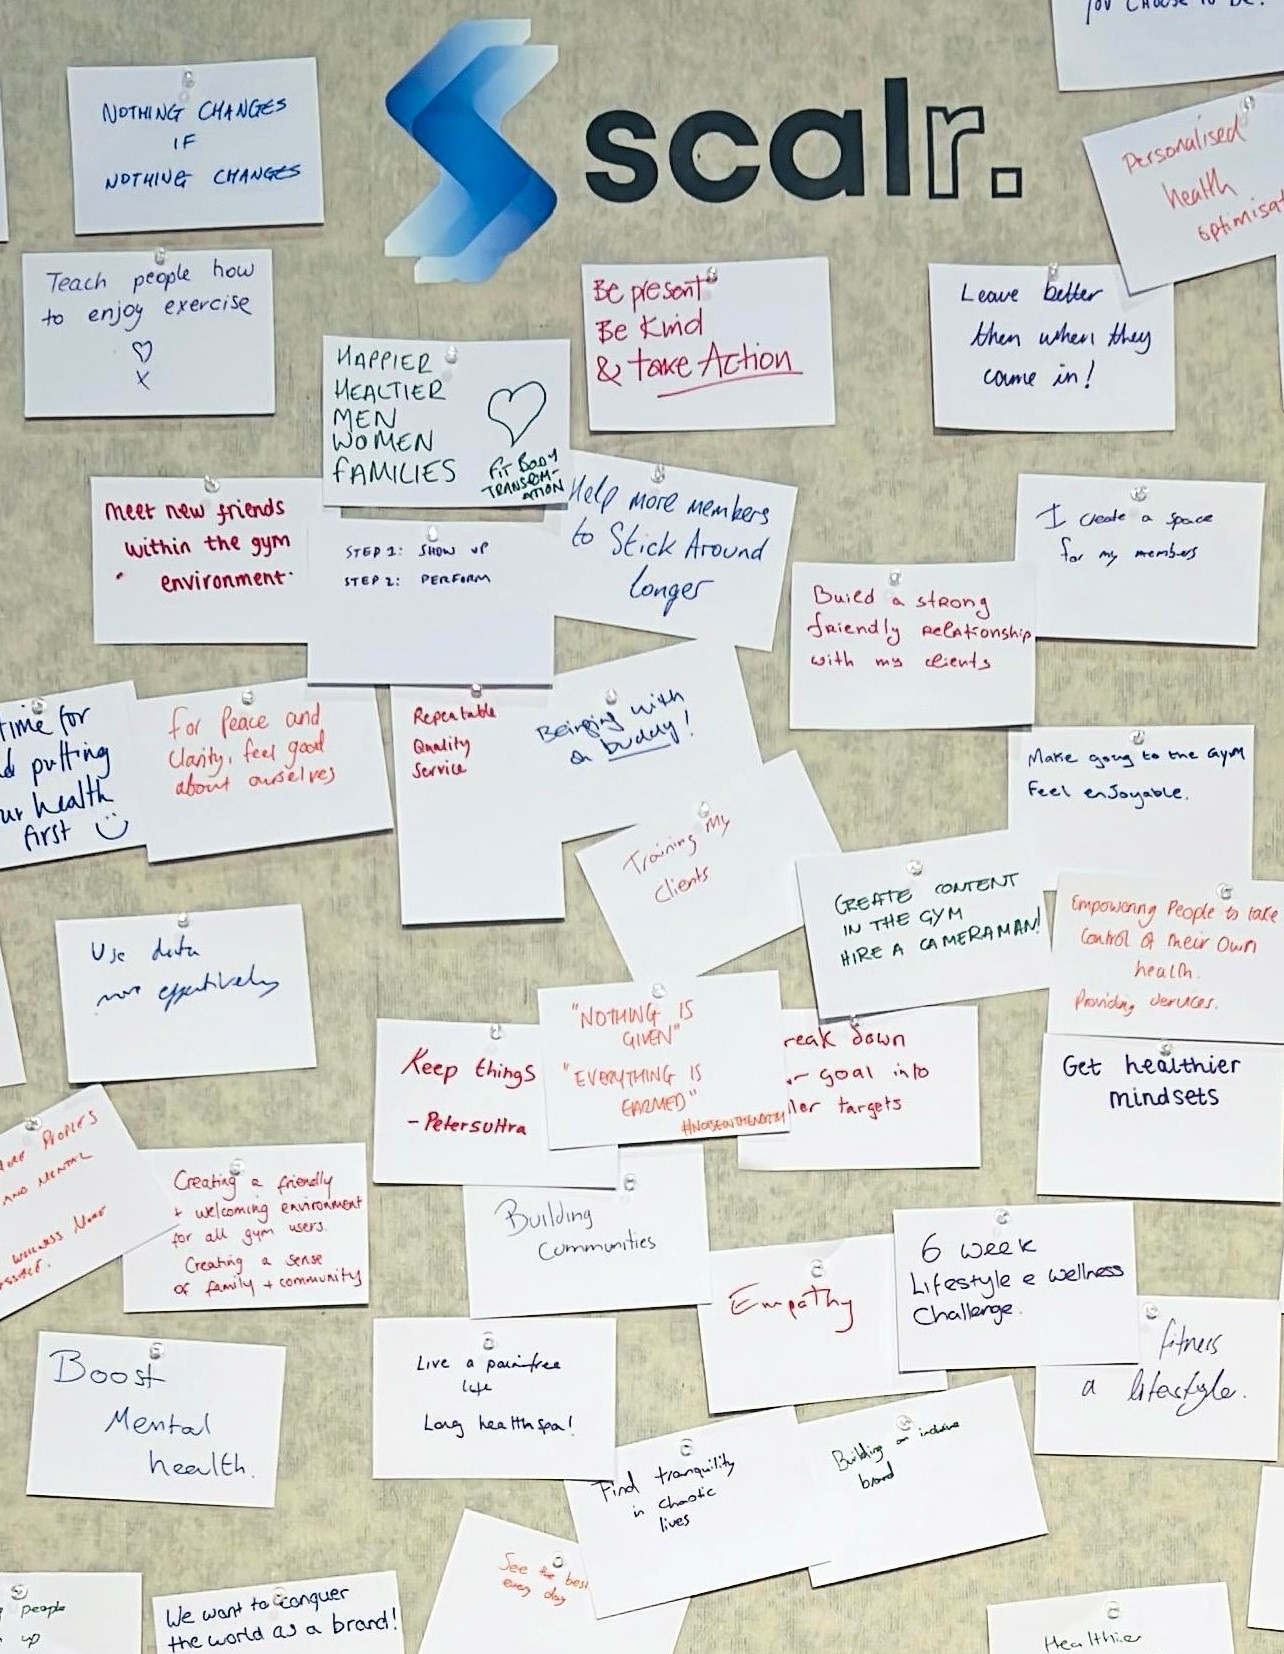 YOU CHOOSE TO BE!
scalr.
NOTHING CHANGES
IF
NOTHING CHANGES
Personalised
health
optimisat
Teach people how
to enjoy exercise
X
HAPPIER
HEALTIER
MEN
WOMEN
FAMILIES
FIT BODY
TRANSFORM-
ATION
Be present
Be Kind
& take Action
Leave better
then when they
came in!
Meet new friends
within the gym
environment
STEP 1: SHOW UP
STEP 2: PERFORM
Help more members
to Stick Around
longer
I create a space
for my members
Build a strong
friendly relationship
with my clients
time for
d putting
ur health
first
For Peace and
Clarity, feel good
about ourselves
Repeatable
Quality
Service
Bringing with
a buddy!
Make going to the Gym
Feel enjoyable.
Training My
Clients
CREATE CONTENT
IN THE GYM
HIRE A CAMERAMAN!
Empowering People to take
Control of their Own
health.
Providing services.
Use data
more effectively
Keep things
- Petersuttra
"NOTHING IS
GIVEN"
"EVERYTHING IS
EARNED"
reak down
goal into
ler targets
Get healthier
mindsets
PEOPLE'S
AND MENTAL
WELLNESS
Creating a friendly
+ welcoming environment
for all gym users.
Creating a sense
of family + community
Building
Communities
Empathy
6 week
Lifestyle e wellness
Challenge.
fitness
a lifestyle.
Boost
Mental
health.
Live a painfree
life
Long healthspa!
Find tranquility
in chaotic
lives
Building an inclusive
brand
See the best
every day
people
up
We want to conquer
the world as a brand!
Healthier